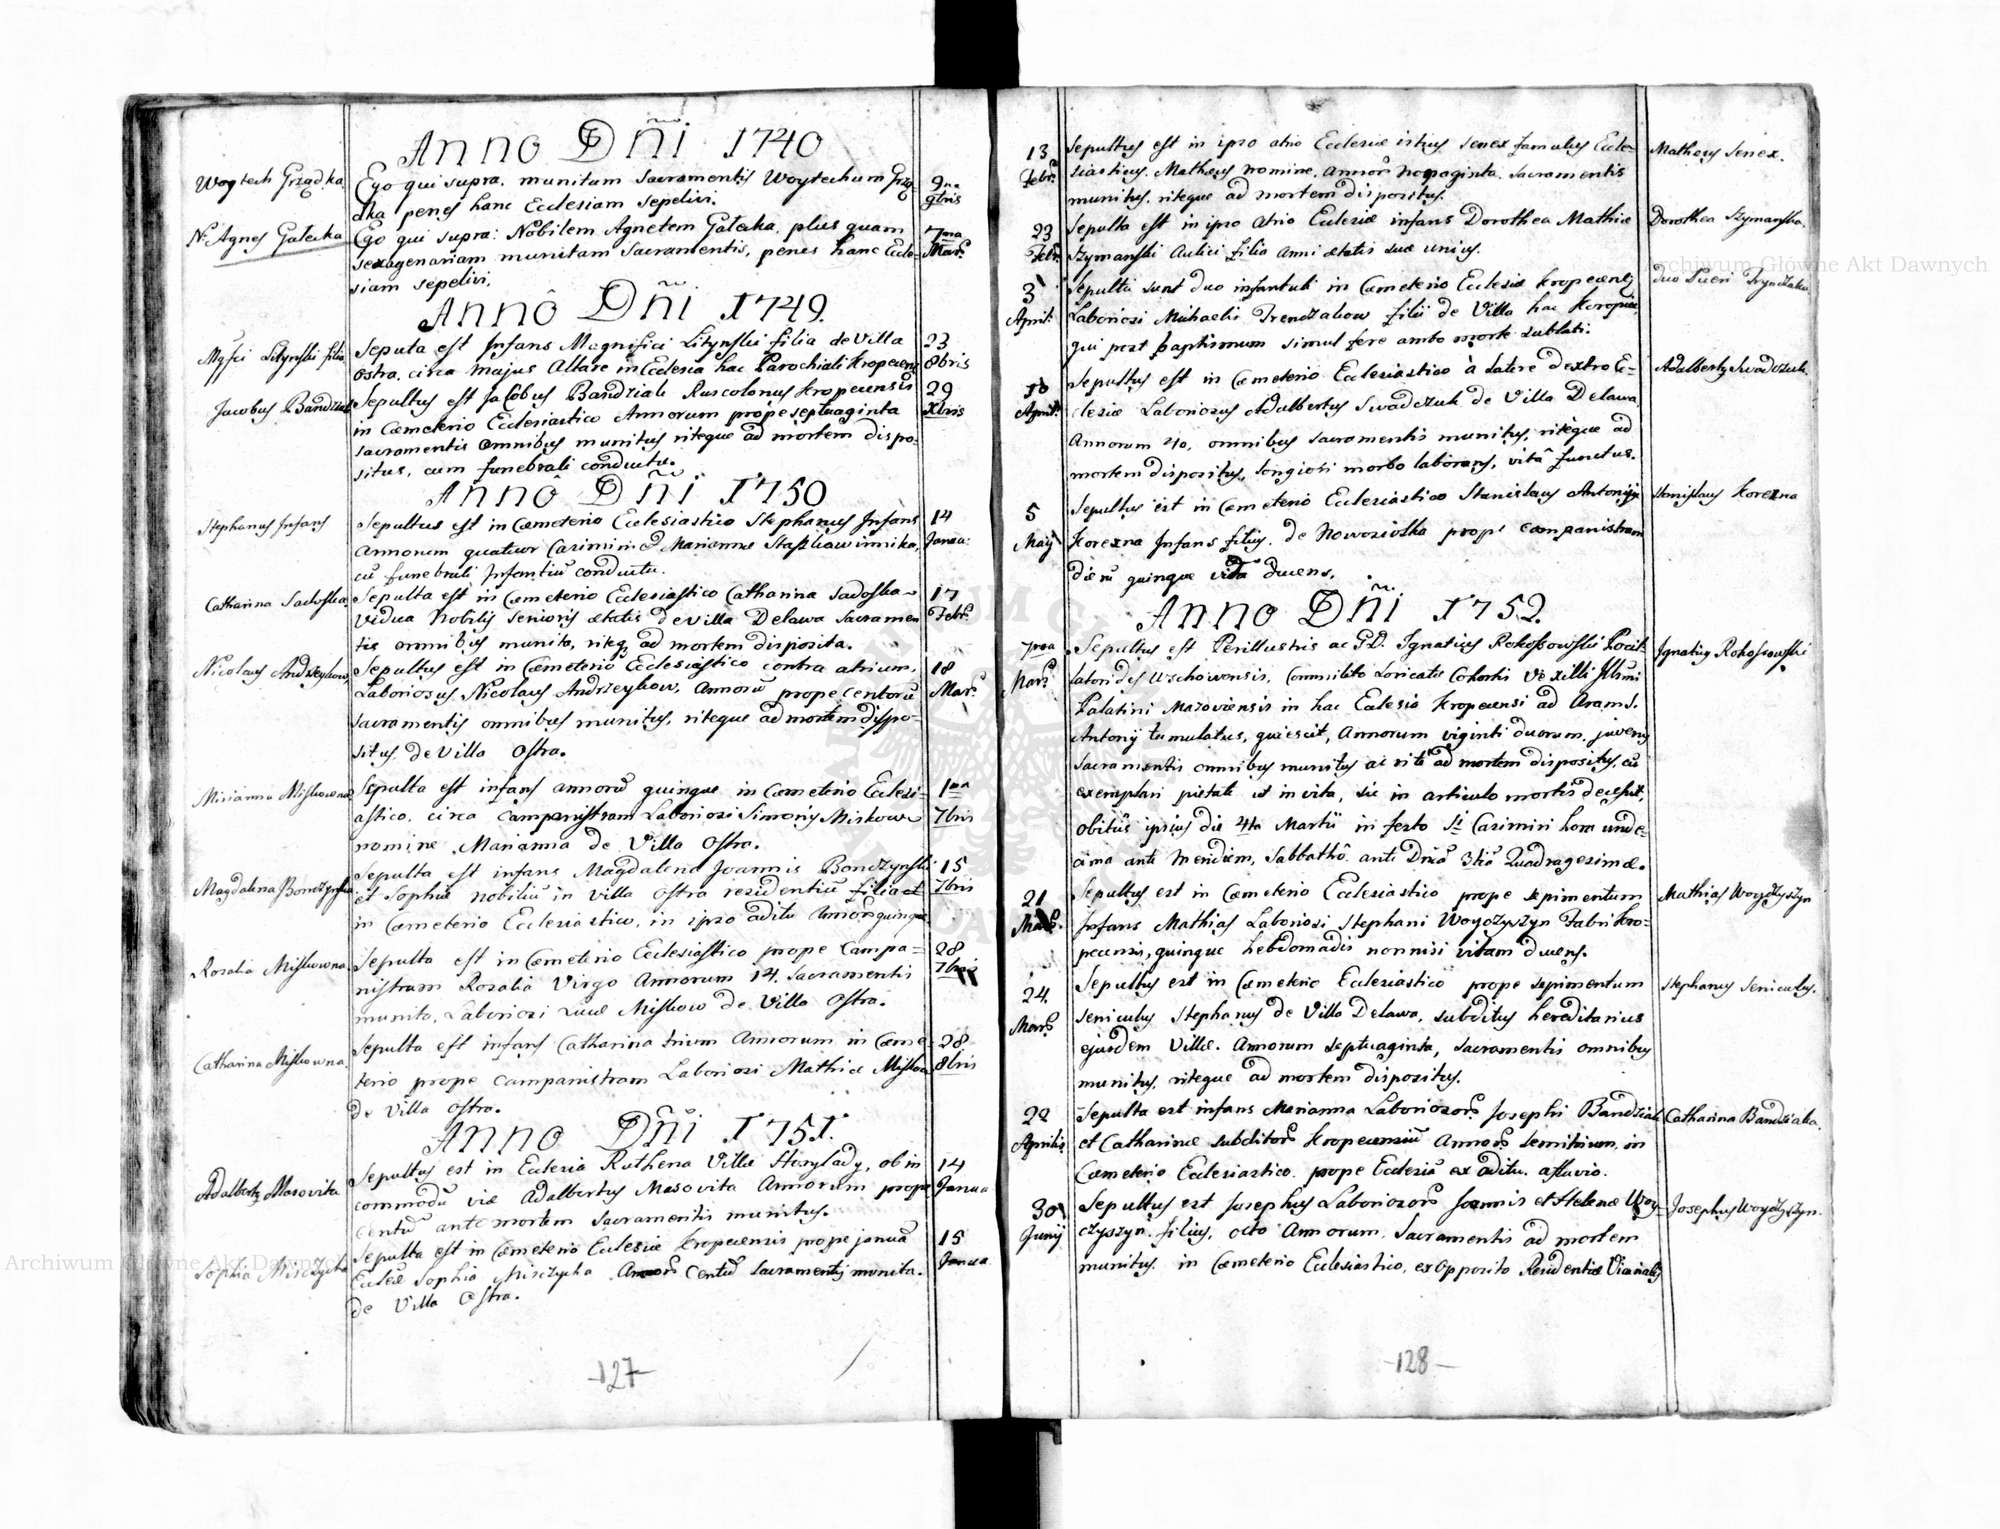 Anno Dñi 1740
Woytech Grządka
Ego qui supra. munitum Sacramentis Woytechum Grzą-
dka penes hanc Ecclesiam sepelivi.
9na
9bris
N. Agnes Gałecka
Ego qui supra: Nobilem Agnetem Gałecka, plus quam
sexagenariam munitam Sacramentis, penes hanc Eccle-
siam sepelivi.
7ma
Mar.
Annô Dñi 1749.
Mgfici Lityński filia
Seputa est Infans Magnifici Lityński filia de Villa
Ostra, circa majus Altare in Eclesia hac Parochiali Kropecens
23
8bris
Jacobus Bandziak
Sepultus est Jacobus Bandziak Ruscolonus Kropecensis
in Cæmeterio Ecclesiastico Annorum prope septuaginta
sacramentis omnibus munitus riteque ad mortem dispo-
situs, cum funebrali conductu.
29
Xbris
Annô Dñi 1750
Stephanus Infans
Sepultus est in Cæmeterio Ecclesiastico Stephanus Infans
Annorum quatuor Casimiri & Marianna
cũ funebrali Infantiũ conductu.
14
Janua:
Catharina Sadoska
Sepulta est in Cæmeterio Ecclesiastico Catharina Sadoska
Vidua Nobilis Senioris ætatis de Villa Delawa Sacramen
tis omnibus munita, riteq ad mortem disposita.
17
Febr.
Nicolaus Andrzeykow
Sepultus est in Cæmeterio Ecclesiastico contra atrium,
Laboriosus Nicolaus Andrzeykow, Annorũ prope centorũ
sacramentis omnibus munitus, riteque ad mortem dispo-
situs, de Villa Ostra.
18
Mar.
Mirianna Miskowna
Sepulta est infans annorũ quinque in Cæmeterio Eclesi-
astico, circa Campanistram Laboriosi Simonis Miskow
nomine Mariamna de Villa Ostra.
1ma
7bris
Magdalena Bonczynska
Sepulta est infans Magdalena Joannis Bonczynski
et Sophiæ nobiliũ in Villa Ostra residentiũ filia et
in Cæmeterio Ecclesiastico, in ipso aditu Annor. quinque
15
7bris
Rosalia Miskowna
Sepulta est in Cæmeterio Ecclesiastico prope Campa-
nistram Rosalia Virgo Annorum 14. Sacramentis
munita, Laboriosi Lucæ Miskow de Villa Ostra.
28
7bris
Catharina Miskowna
Sepulta est infans Catharina trium Annorum in Cæme-
terio prope Campanistram Laboriosi Mathiæ Miskow
de Villa Ostra.
28
8bris
Anno Dñi 1751.
Adalbertus Masovita
Sepultus est in Eclesia Ruthena Villæ Horylady, ob in
commodũ viæ Adalbertus Masovita Annorum prope
Centũ ante mortem Sacramentis munitus.
14
Janua
Sophia Misczycha
Sepulta est in Cæmeterio Eclesiæ Kropecensis prope januã
Eclesiæ Sophia Misczycha Annor. Centũ Sacramentis munita.
de Villa Ostra.
15
Janua
-127-
13
Febr.
Sepultus est in ipso atrio Ecclesiæ istius senex famulus Eccle-
siasticus, Matheus nomine, annor. nopaginta. Sacramentis
munitus, riteque ad mortem dispositus.
Matheus Senex.
23
Febr.
Sepulta est in ipso Atrio Eclesiæ infans Dorothea Mathiæ
Szymanski Aulici filia Anni ætatis suæ unius.
Dorothea Szymanska
3
April:
Sepulti sunt duo infantuli in Cæmeterio Eclesiæ Kropecens
Laboriosi Michaelis Trenczakow filii de Villa hac Koropiec
qui post baptismum simul fere ambo morte sublati.
duo Pueri
10
April:
Sepultus est in Cæmeterio Ecclesiastico à latere dextro E-
clesiæ Laboriosus Adalbertus Swadczuk de Villa Delawa
Annorum 40, omnibus sacramentis munitus, riteque ad
mortem dispositus, longiori morbo laborans, vitâ functus.
Adalbertus Swadczuk
5
Maij
Sepultus est in Cæmeterio Ecclesiastico Stanislaus Antonij
Korezna Infans filius, de Nowosiolka prope campanistram
dierũ quinque vitã ducens.
Stanislaus Korezna
Anno Dñi 1752.
7ma
Mar.
Sepultus est Perillustris ac G.D. Ignatius Rokossowski Pocil-
latorides Wschowensis, Commilito Loricatæ Cohortis Vexilli Illsmi
Palatini Mazoviensis in hac Eclesia Kropecensi ad Aram S.
Antonij tumulatus, quiescit, Annorum viginti duorum, juvenis
Sacramentis omnibus munitus ac rite ad mortem dispositus, cũ
exemplari pietate ut in vita, sic in articulo mortis decessit,
obitũs ipsius die 4ta Martii in festo Sti Casimiri hora unde-
cima ante Meridiem, Sabbathô ante Dnicã 3tiã Quadragesimæ.
Ignatius Rokossowski
21
Mar.
Sepultus est in Cæmeterio Ecclesiastico prope sepimentum
Infans Mathias Laboriosi Stephani Woyczyszyn Fabri Kro-
pecensis, quinque hebdomadis nonnisi vitam ducens.
Mathias Woyczyszyn
24.
Mar.
Sepultus est in Cæmeterio Ecclesiastico prope sepimentum
Seniculus Stephanus de Villa Delawa, subditus hereditarius
ejusdem Villæ. Annorum septuaginta, Sacramentis omnibus
munitus, riteque ad mortem dispositus.
Stephanus Seniculus.
22
Aprilis
Sepulta est infans Marianna Laboriosor. Josephi Bandziak
et Catharinæ subditor. Kropecensiũ Annor. in
Cæmeterio Ecclesiastico prope Ecclesiã ex aditu a fluvio.
Catharina Bandziaka.
30
Junij
Sepultus est Josephus Laboriosor. Joannis et Helenæ Woy-
czyszyn filius, octo Annorum, Sacramentis ad mortem
munitus, in Cæmeterio Ecclesiastico, ex opposito Residentiæ Vicarialis
Josephus Woyczyszyn.
-128-
Archiwum Główne Akt Dawnych
Archiwum Główne Akt Dawnych